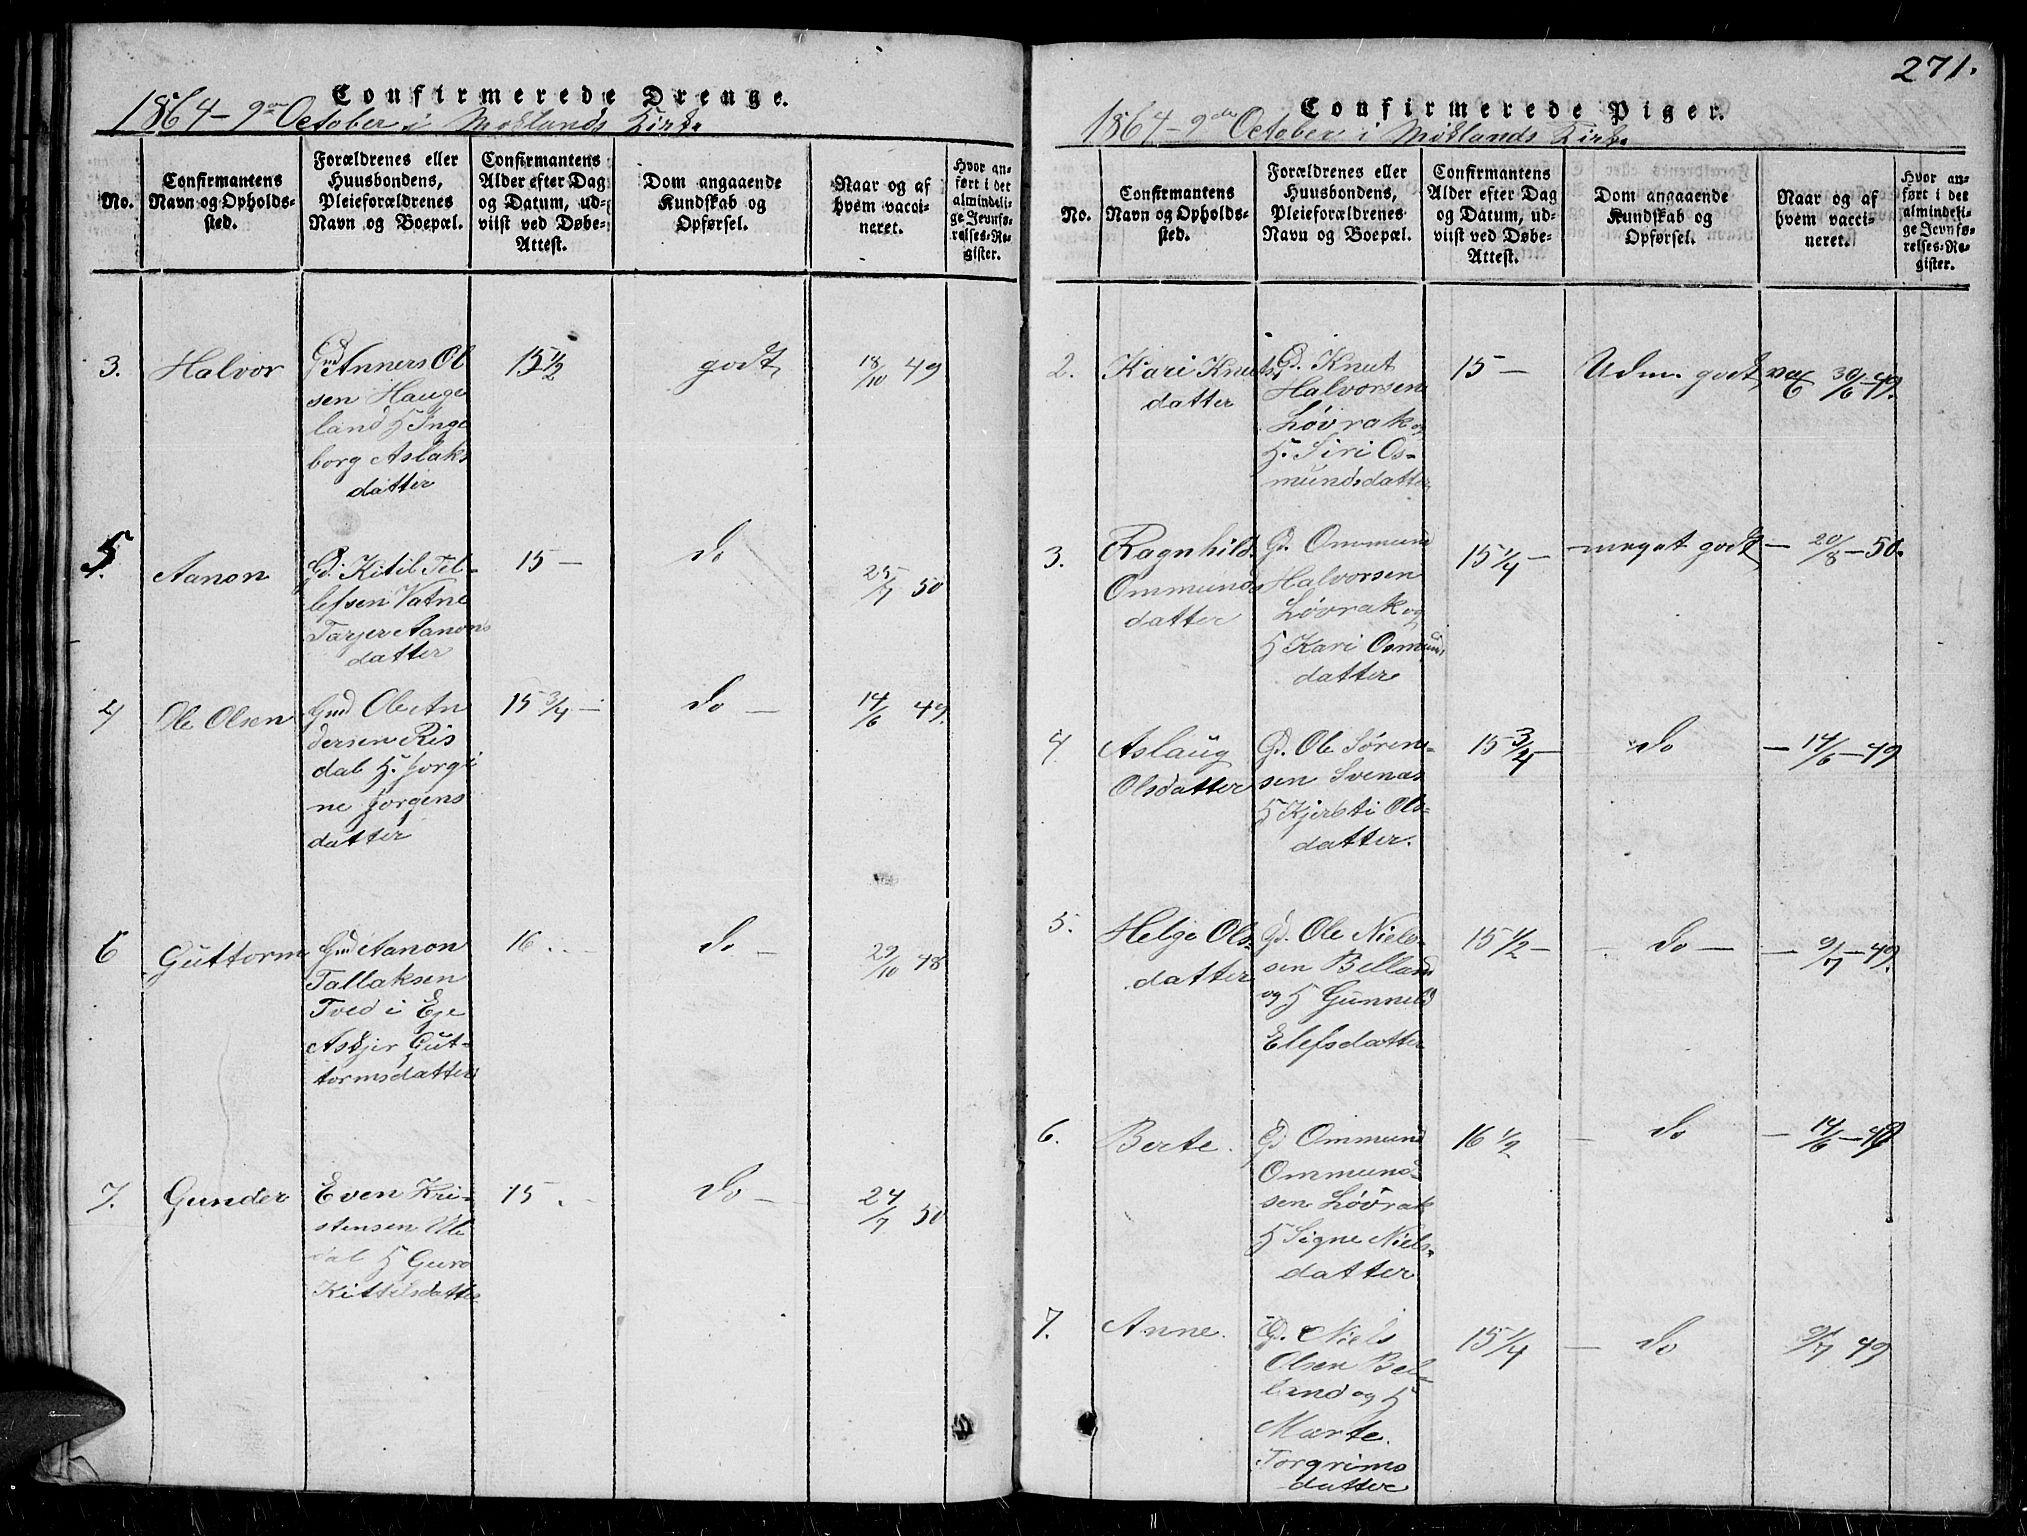 Confirmerede Drenge.
1864 - 9de October i Moslands Kirke
No.
Confirmantens
Navn og Opholds-
sted.
Forældrenes eller
Huusbondens,
Pleieforældrenes
Navn og Boepæl.
Confirmantens
Alder efter Dag
og Datum, ud-
viist ved Døbe-
Attest.
Dom angaaende
Kundskab og
Opførsel.
Naar og af
hvem vacci-
neret.
Hvor an-
ført i det
almindeli-
ge Jevnfø-
relses-Re-
gister.
3. Halvor
Gmd Anners Ol
sen Hauge
land H Inge
borg Aslaks
datter
15 1/2
godt
18/10 49
5. Aanon
Gd. Kitil Tel-
lefsen Vatne
Tarjer Aanons
datter
15 -
do
25/7 50
4 Ole Olsen
Gmd Ole An
dersen Ris
dal H. Jorgi
ne Jorgens
datter
15 3/4 -
do -
14/6 49.
6 Guttorm
Gmd Aanon
Tallaksen
Tved i Eje
Asbjer Gut-
tormsdatter
16. -
do -
29/10 48
7. Gunder
Even Kri-
stensen Ule
dal H Guro
Kittilsdatter
15. -
do -
24/7 50
271.
Confirmerede Piger.
1864 - 9de October i Moslands Kirke
No.
Confirmantens
Navn og Opholds-
sted.
Forældrenes eller
Huusbondens,
Pleieforældrenes
Navn og Boepæl.
Confirmantens
Alder efter Dag
og Datum, ud-
viist ved Døbe-
Attest.
Dom angaaende
Kundskab og
Opførsel.
Naar og af
hvem vacci-
neret.
Hvor an-
ført i det
almindeli-
ge Jevnfø-
relses-Re-
gister.
2. Kari Knuts
datter
Gd. Knut
Halvorsen
Løvrak og
H. Siri Os-
mundsdatter
15 -
Udm. godt
vac 30/6 49.
3. Ragnhild
Ommunds
datter
Gd. Ommund
Halvorsen
Løvrak og
H Kari Osmunds
datter
15 1/4 -
- meget godt
- 20/8 - 50.
4. Aslaug
Olsdatter
Gd. Ole Sören-
sen Svenas
H Kjersti Ols-
datter.
15 3/4 -
do
- 14/6 - 49
5. Helge Ols-
datter
Gd. Ole Niels-
sen Belland
og H Gunneld
Elefsdatter
15 1/2 -
- do -
- 9/7 - 49.
6. Berte.
Gd Ommund
Ommunds-
sen Løvrak
H Signe Niels-
datter
16 1/2
- do
- 14/6 - 48
7. Anne.
Gd. Niels
Olsen Bel-
land og H
Marte
Torgrims
datter
15 1/4
- do
9/7 49